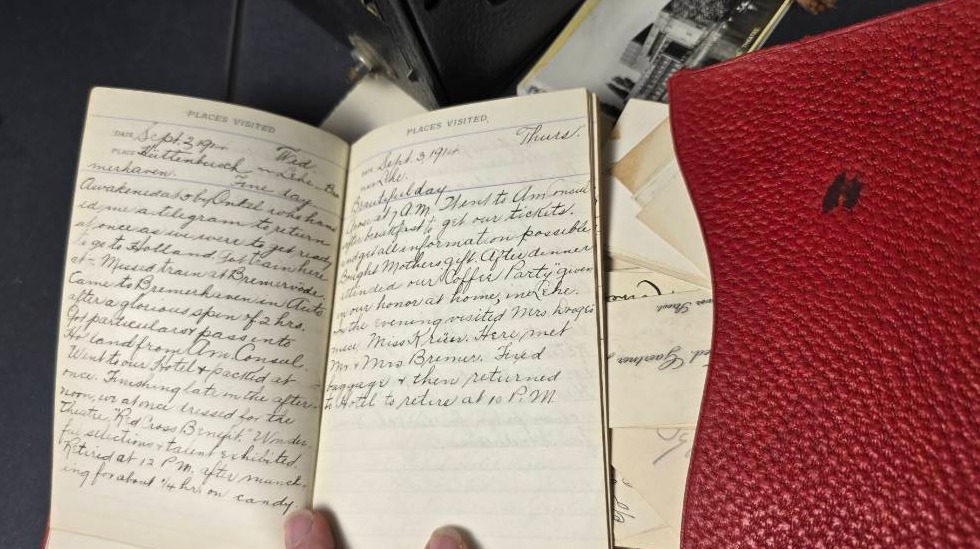 PLACES VISITED
DATE Sept. 3, 1914 Wed.
PLACE Lehe - Bre
merhaven. Fine day
Awakened at 6 by Onkel who hand
ed me a telegram to return
at once as we were to get ready
to go to Holland. Got train here
at - Missed train at Bremervörde.
Came to Bremerhaven in Auto
after a glorious spen of 2 hrs.
Got particulars & pass into
Holland from Am. Consul.
Went to our Hotel & packed at
once. Finishing late in the after-
noon, we at once dressed for the
Theatre, "Red Cross Benefit." Wonder-
ful selections & talent exhibited.
Retired at 12 P.M. after munch-
ing for about 1/4 hr. on candy.
PLACES VISITED.
Thurs.
DATE Sept. 3, 1914
PLACE Lehe.
Beautiful day
Arose at 7 A.M. Went to Am Consul
after breakfast to get our tickets.
and get all information possible
Bought Mothers gift. After dinner
attended our "Coffee Party" given
in our honor at home, in Lehe.
In the evening visited Mrs.
niece, Miss Here met
Mr. & Mrs Bremer. Fixed
baggage & then returned
to Hotel to retire at 10 P.M
THEATRE
Street
Gardner